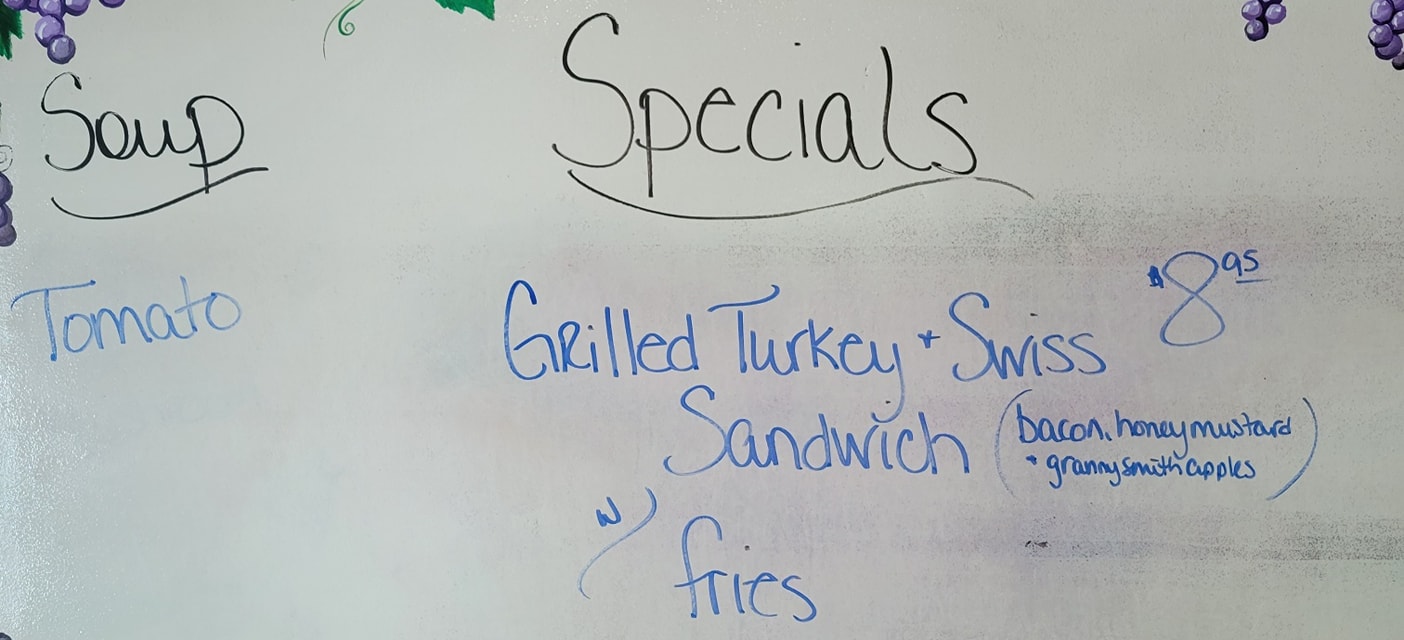 Soup
Specials
Tomato
Grilled Turkey + Swiss $8.95
Sandwich (bacon, honey mustard
+ granny smith apples)
w/ fries